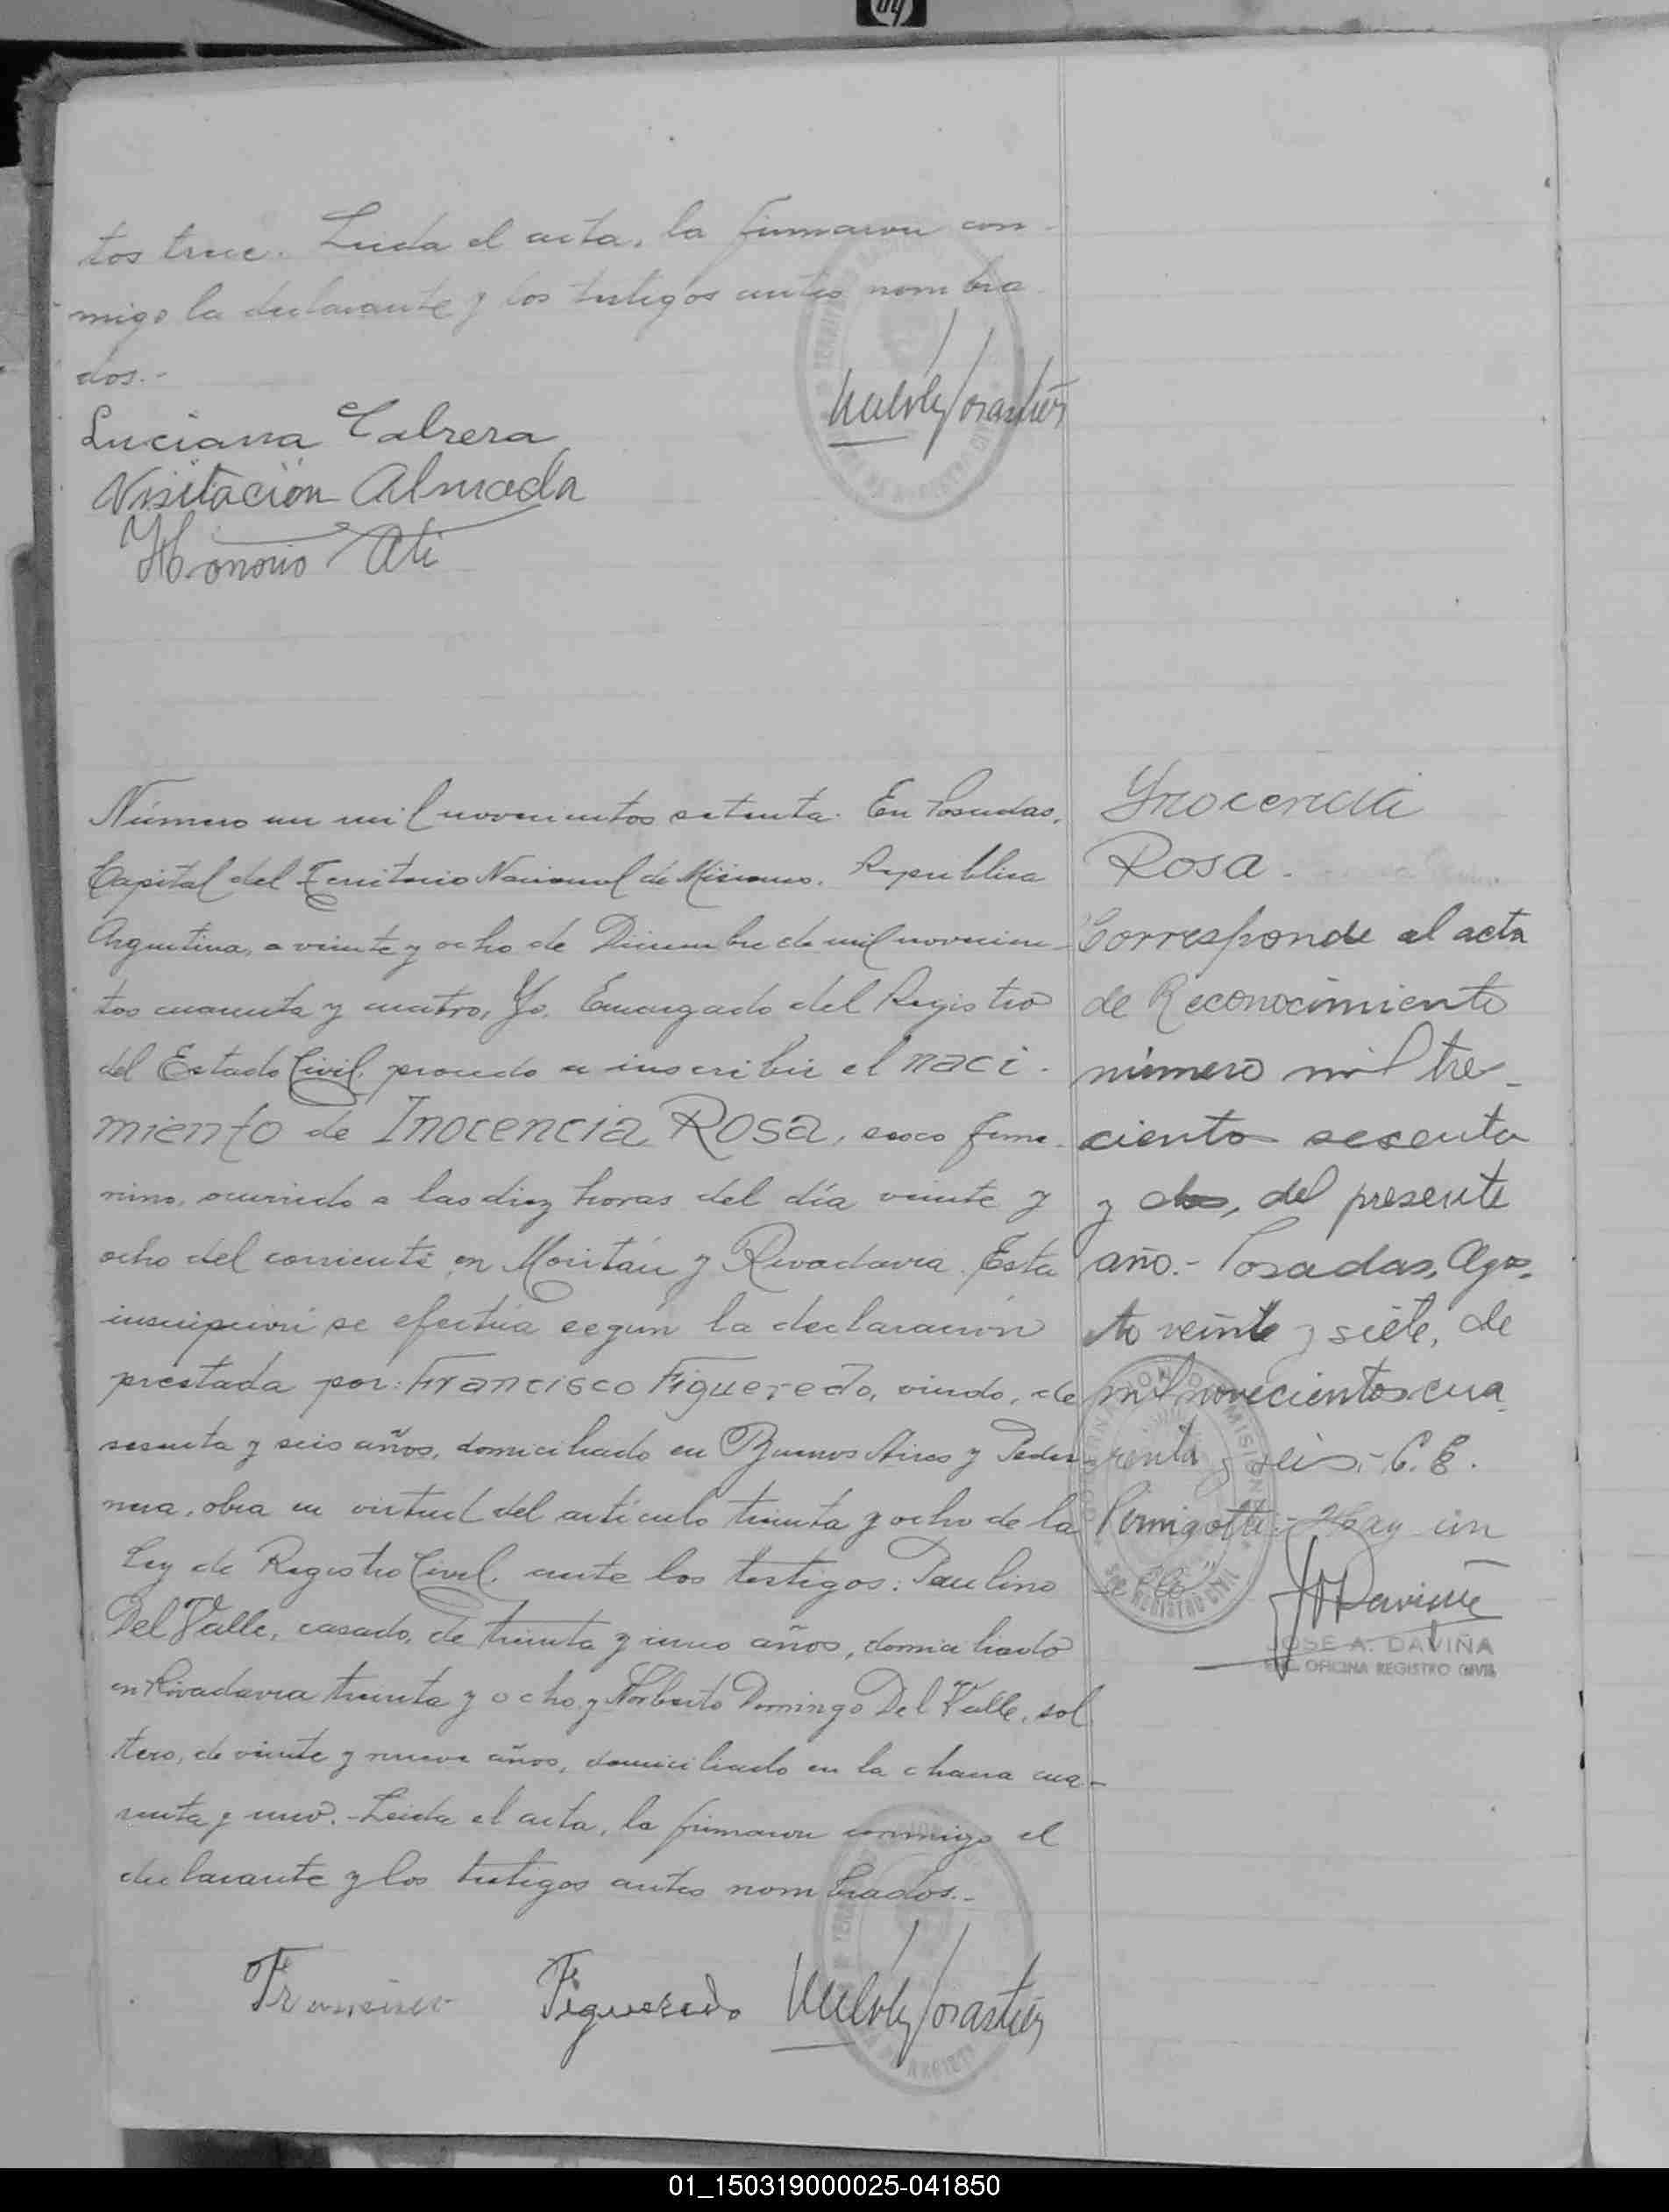 hp
tos trece. Leida el acta, la firmaron con-
migo la declarante y los testigos antes nombra-
dos.-
Luciana Cabrera
Visitación Almada
Honorio
Número un mil novecientos setenta. En Posadas,
Capital del Territorio Nacional de Misiones. República
Argentina, a veinte y ocho de Diciembre de mil novecien-
tos cuarenta y cuatro, Yo, Encargado del Registro
del Estado Civil, procedo a inscribir el naci-
miento de Inocencia Rosa, sexo feme-
nino, ocurrido a las diez horas del día veinte y
ocho del corriente en y Rivadavia. Esta
inscripción se efectúa según la declaración
prestada por: Francisco Figueredo, viudo, de
sesenta y seis años, domiciliado en Buenos Aires y Peder-
nera, obra en virtud del artículo treinta y ocho de la
Ley de Registro Civil, ante los testigos: Paulino
Del Valle, casado, de treinta y cinco años, domiciliado
en Rivadavia treinta y ocho y Norberto Domingo Del Valle, sol
tero, de veinte y nueve años, domiciliado en la chacra cua-
renta y uno.- Leida el acta, la firmaron conmigo el
declarante y los testigos antes nombrados.-
Francisco Figueredo
Inocencia
Rosa.
Corresponde al acta
de Reconocimiento
número mil tre-
ciento sesenta
y dos, del presente
año.- Posadas, Agos-
to veinte y siete, de
mil novecientos cua
renta y seis.- C. E.
Hay un
sello
JOSE A. DAVIÑA
OFICINA REGISTRO CIVIL
01_150319000025-041850